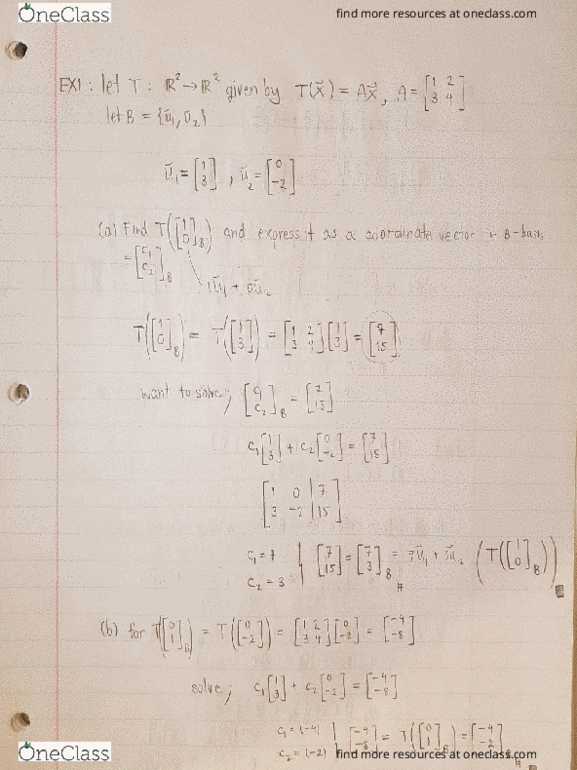 OneClass
find more resources at oneclass.com
EX1: let T: R² → R² given by T(x⃗) = Ax⃗, A = [1 2; 3 4]
let B = {u⃗₁, u⃗₂}
u⃗₁ = [1; 3], u⃗₂ = [0; -2]
(a) Find T([1; 0]_B) and express it as a coordinate vector in B-basis
= [c₁; c₂]_B
1u⃗₁ + 0u⃗₂
T([1; 0]_B) = T([1; 3]) = [1 2; 3 4][1; 3] = [7; 15]
want to solve; [c₁; c₂]_B = [7; 15]
c₁[1; 3] + c₂[0; -2] = [7; 15]
[1 0 | 7; 3 -2 | 15]
c₁ = 7
c₂ = 3
[7; 15] = [7; 3]_B = 7u⃗₁ + 3u⃗₂ (T([1; 0]_B))
(b) for T([0; 1]_B) = T([0; -2]) = [1 2; 3 4][0; -2] = [-4; -8]
solve; c₁[1; 3] + c₂[0; -2] = [-4; -8]
c₁ = (-4)
c₂ = (-2)
[-4; -8] = T([0; 1]_B) = [-4; -2]_B
OneClass
find more resources at oneclass.com